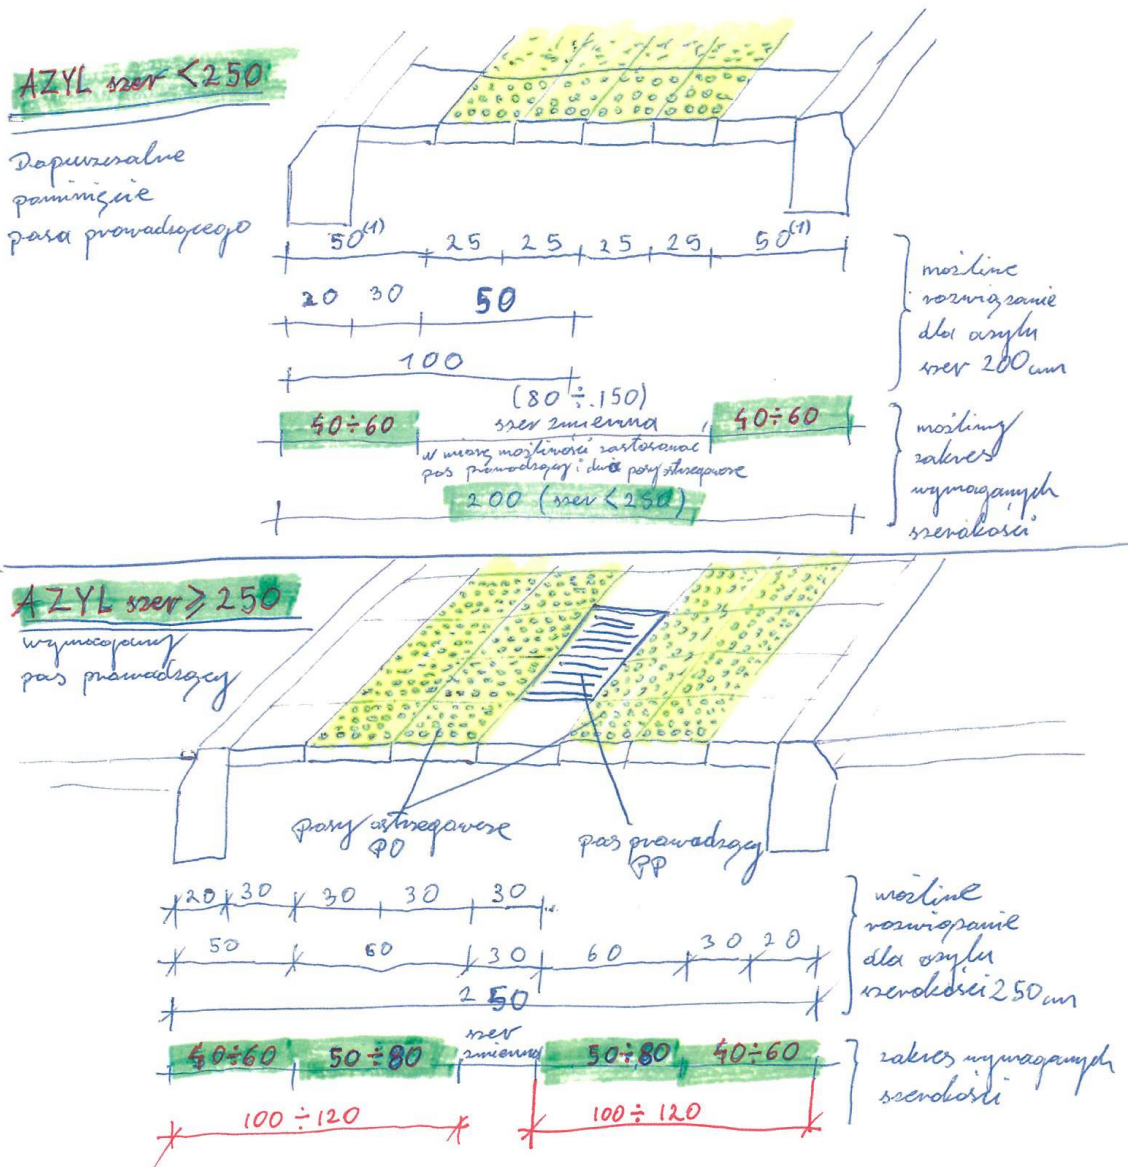 AZYL szer <250
Dopuszczalne
pominięcie
pasa prowadzącego
50(1) 25 25 25 25 50(1)
20 30 50
100
możliwe
rozwiązanie
dla azylu
szer 200cm
(80÷150)
40÷60 szer zmienna 40÷60
w miarę możliwości zastosować
pas prowadzący i dwa pasy ostrzegawcze
200 (szer <250)
możliwy
zakres
wymaganych
szerokości
AZYL szer ≥ 250
wymagany
pas prowadzący
pasy ostrzegawcze
PO
pas prowadzący
PP
20 30 30 30 30
50 60 30 60 30 20
250
możliwe
rozwiązanie
dla azylu
szerokości 250cm
40÷60 50÷80 szer zmienna 50÷80 40÷60
100÷120 100÷120
zakres wymaganych
szerokości